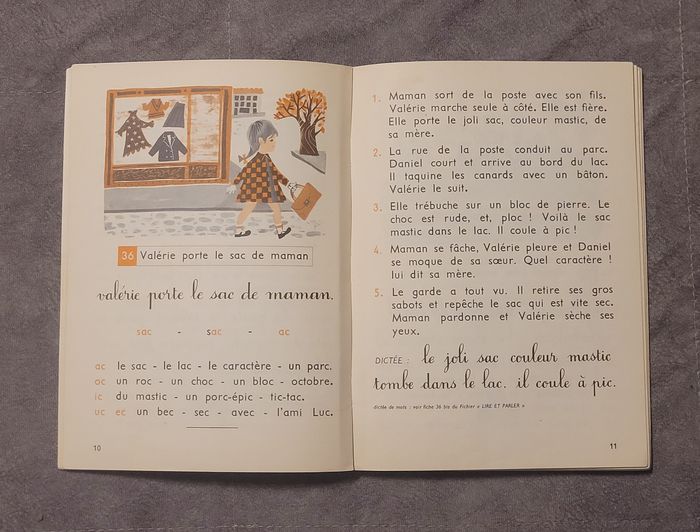 36 Valérie porte le sac de maman
valérie porte le sac de maman.
sac - sac - ac
ac le sac - le lac - le caractère - un parc.
oc un roc - un choc - un bloc - octobre.
ic du mastic - un porc-épic - tic-tac.
uc ec un bec - sec - avec - l'ami Luc.
10
1. Maman sort de la poste avec son fils.
Valérie marche seule à côté. Elle est fière.
Elle porte le joli sac, couleur mastic, de
sa mère.
2. La rue de la poste conduit au parc.
Daniel court et arrive au bord du lac.
Il taquine les canards avec un bâton.
Valérie le suit.
3. Elle trébuche sur un bloc de pierre. Le
choc est rude, et, ploc ! Voilà le sac
mastic dans le lac. Il coule à pic !
4. Maman se fâche, Valérie pleure et Daniel
se moque de sa sœur. Quel caractère !
lui dit sa mère.
5. Le garde a tout vu. Il retire ses gros
sabots et repêche le sac qui est vite sec.
Maman pardonne et Valérie sèche ses
yeux.
DICTÉE : le joli sac couleur mastic
tombe dans le lac. il coule à pic.
dictée de mots : voir fiche 36 bis du Fichier « LIRE ET PARLER »
11